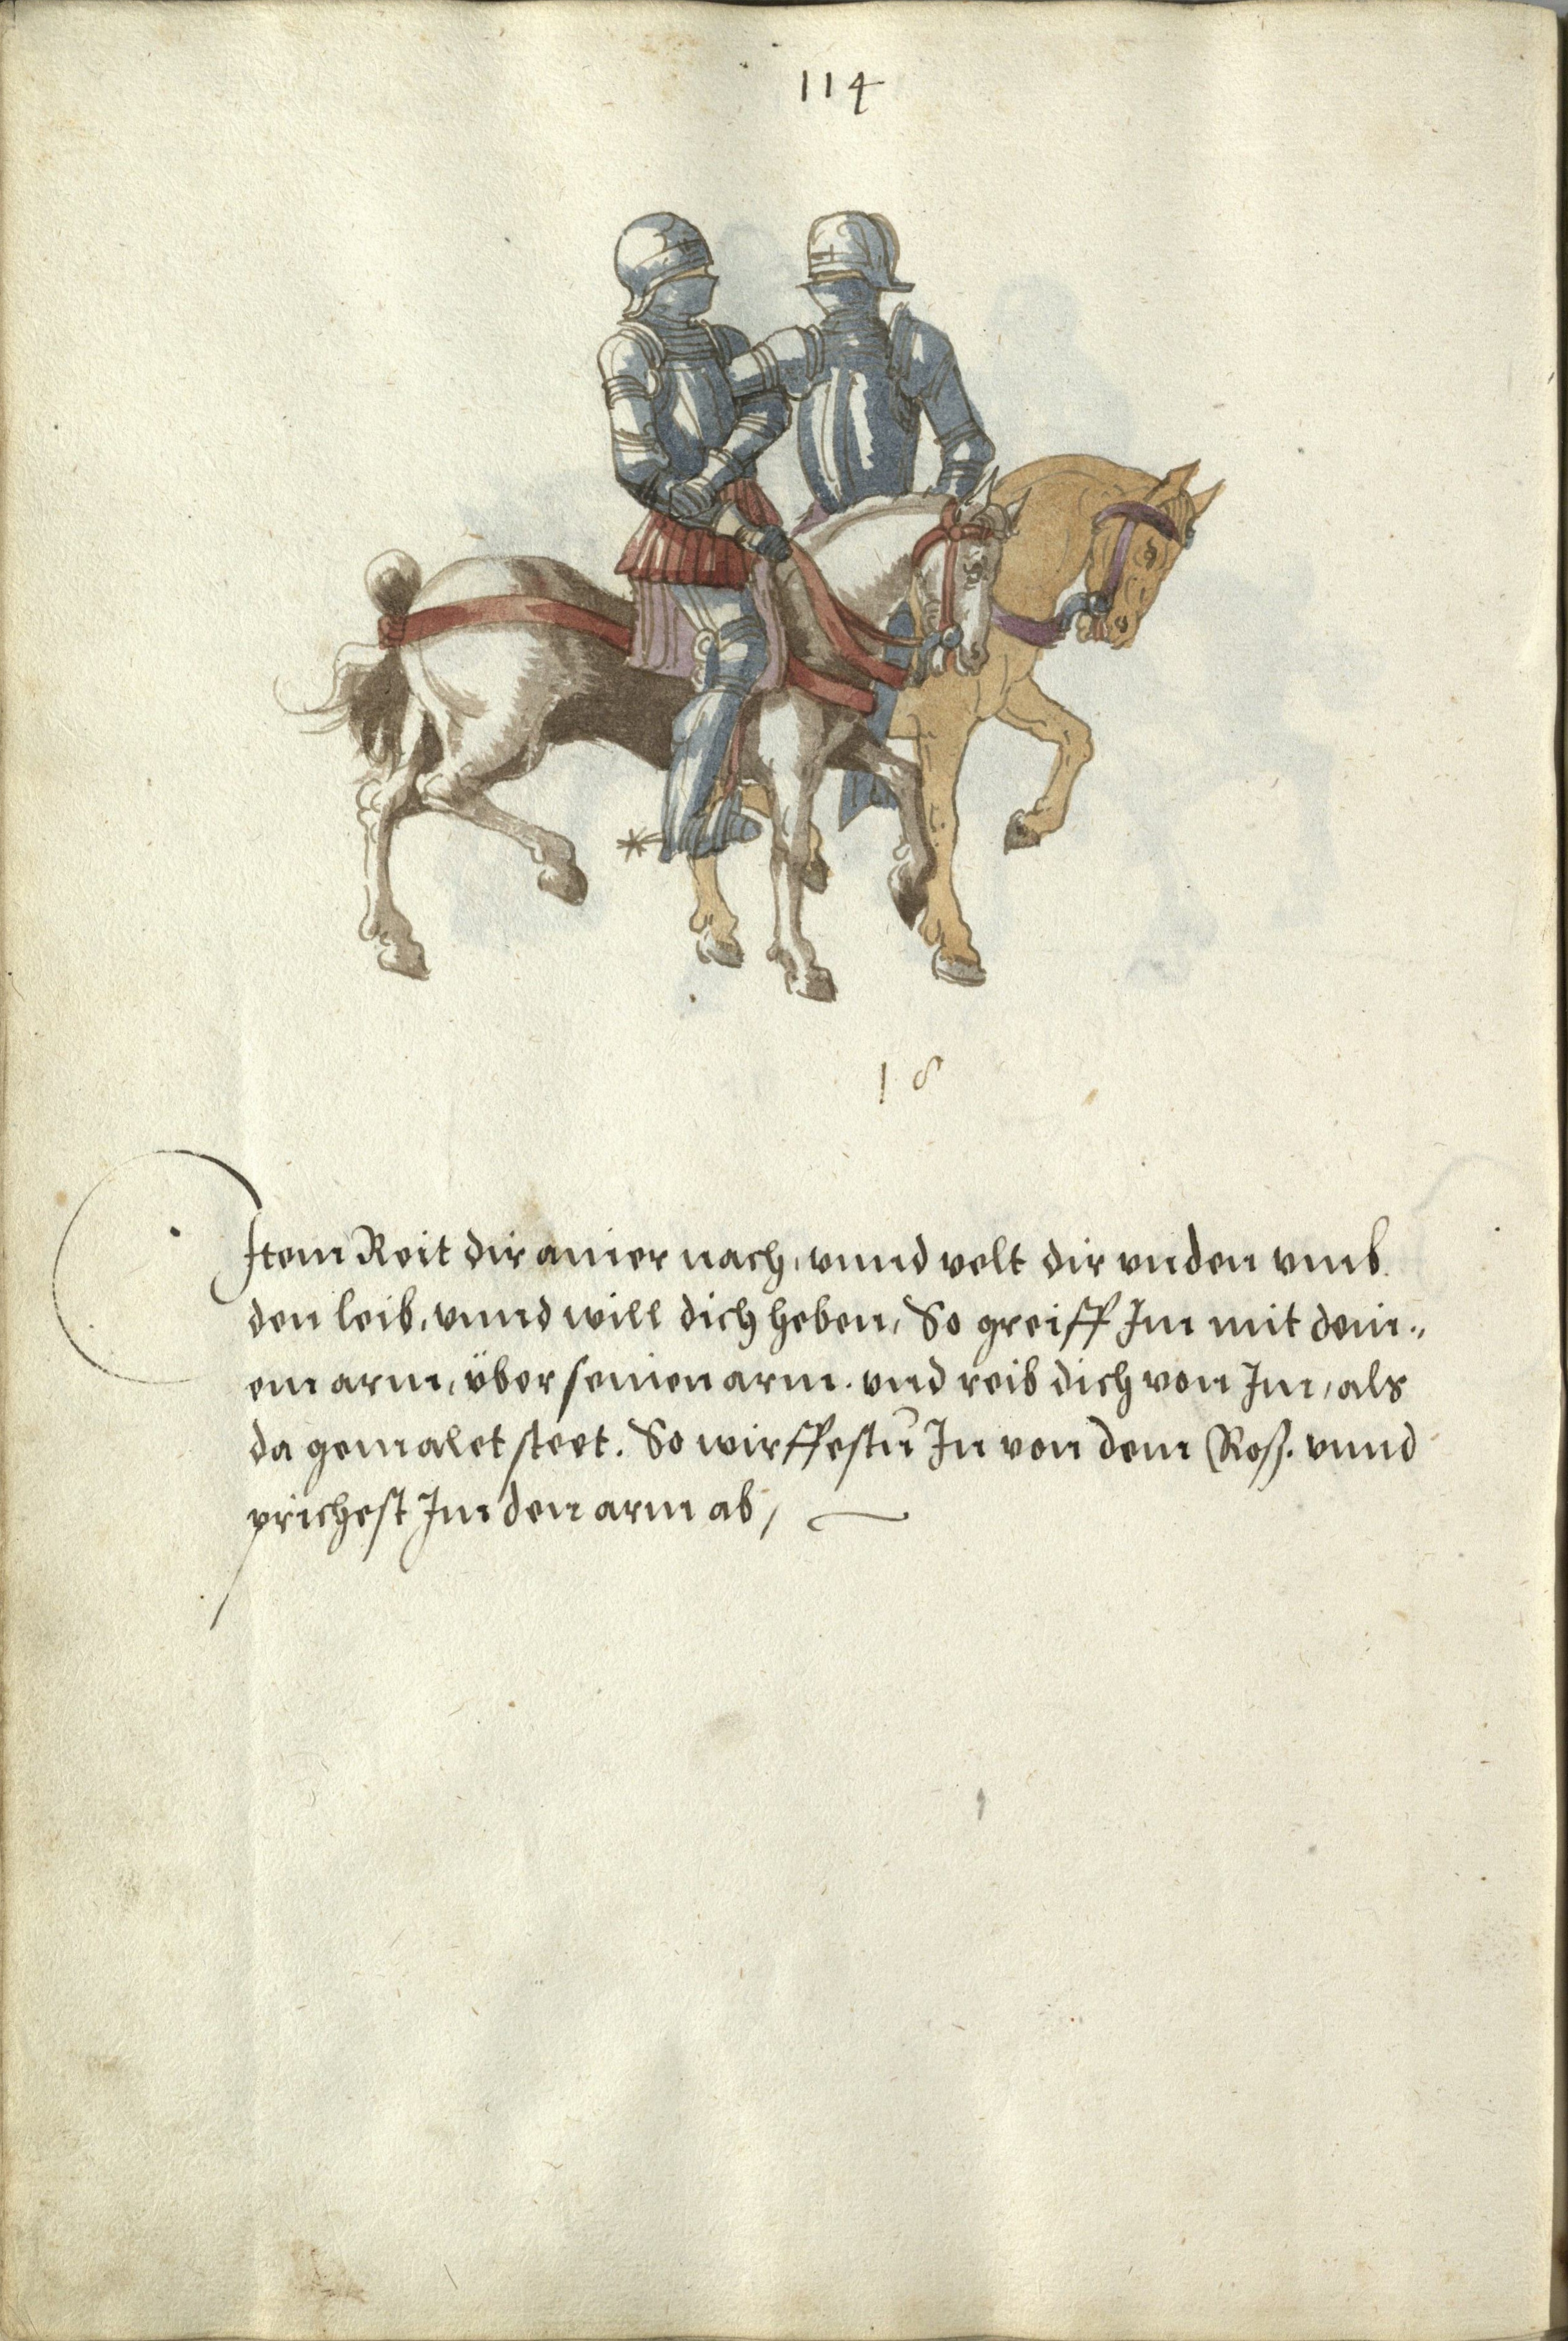 114
18
Item Reit dir ainer nach, vnnd velt dir vnden vmb
den leib, vnnd will dich heben, So greiff Im mit dein„
em arm, über seinen arm. vnd reib dich von Im, als
da gemalet steet. So wirffestu In von dem Roß. vnnd
prichest Im den arm ab,